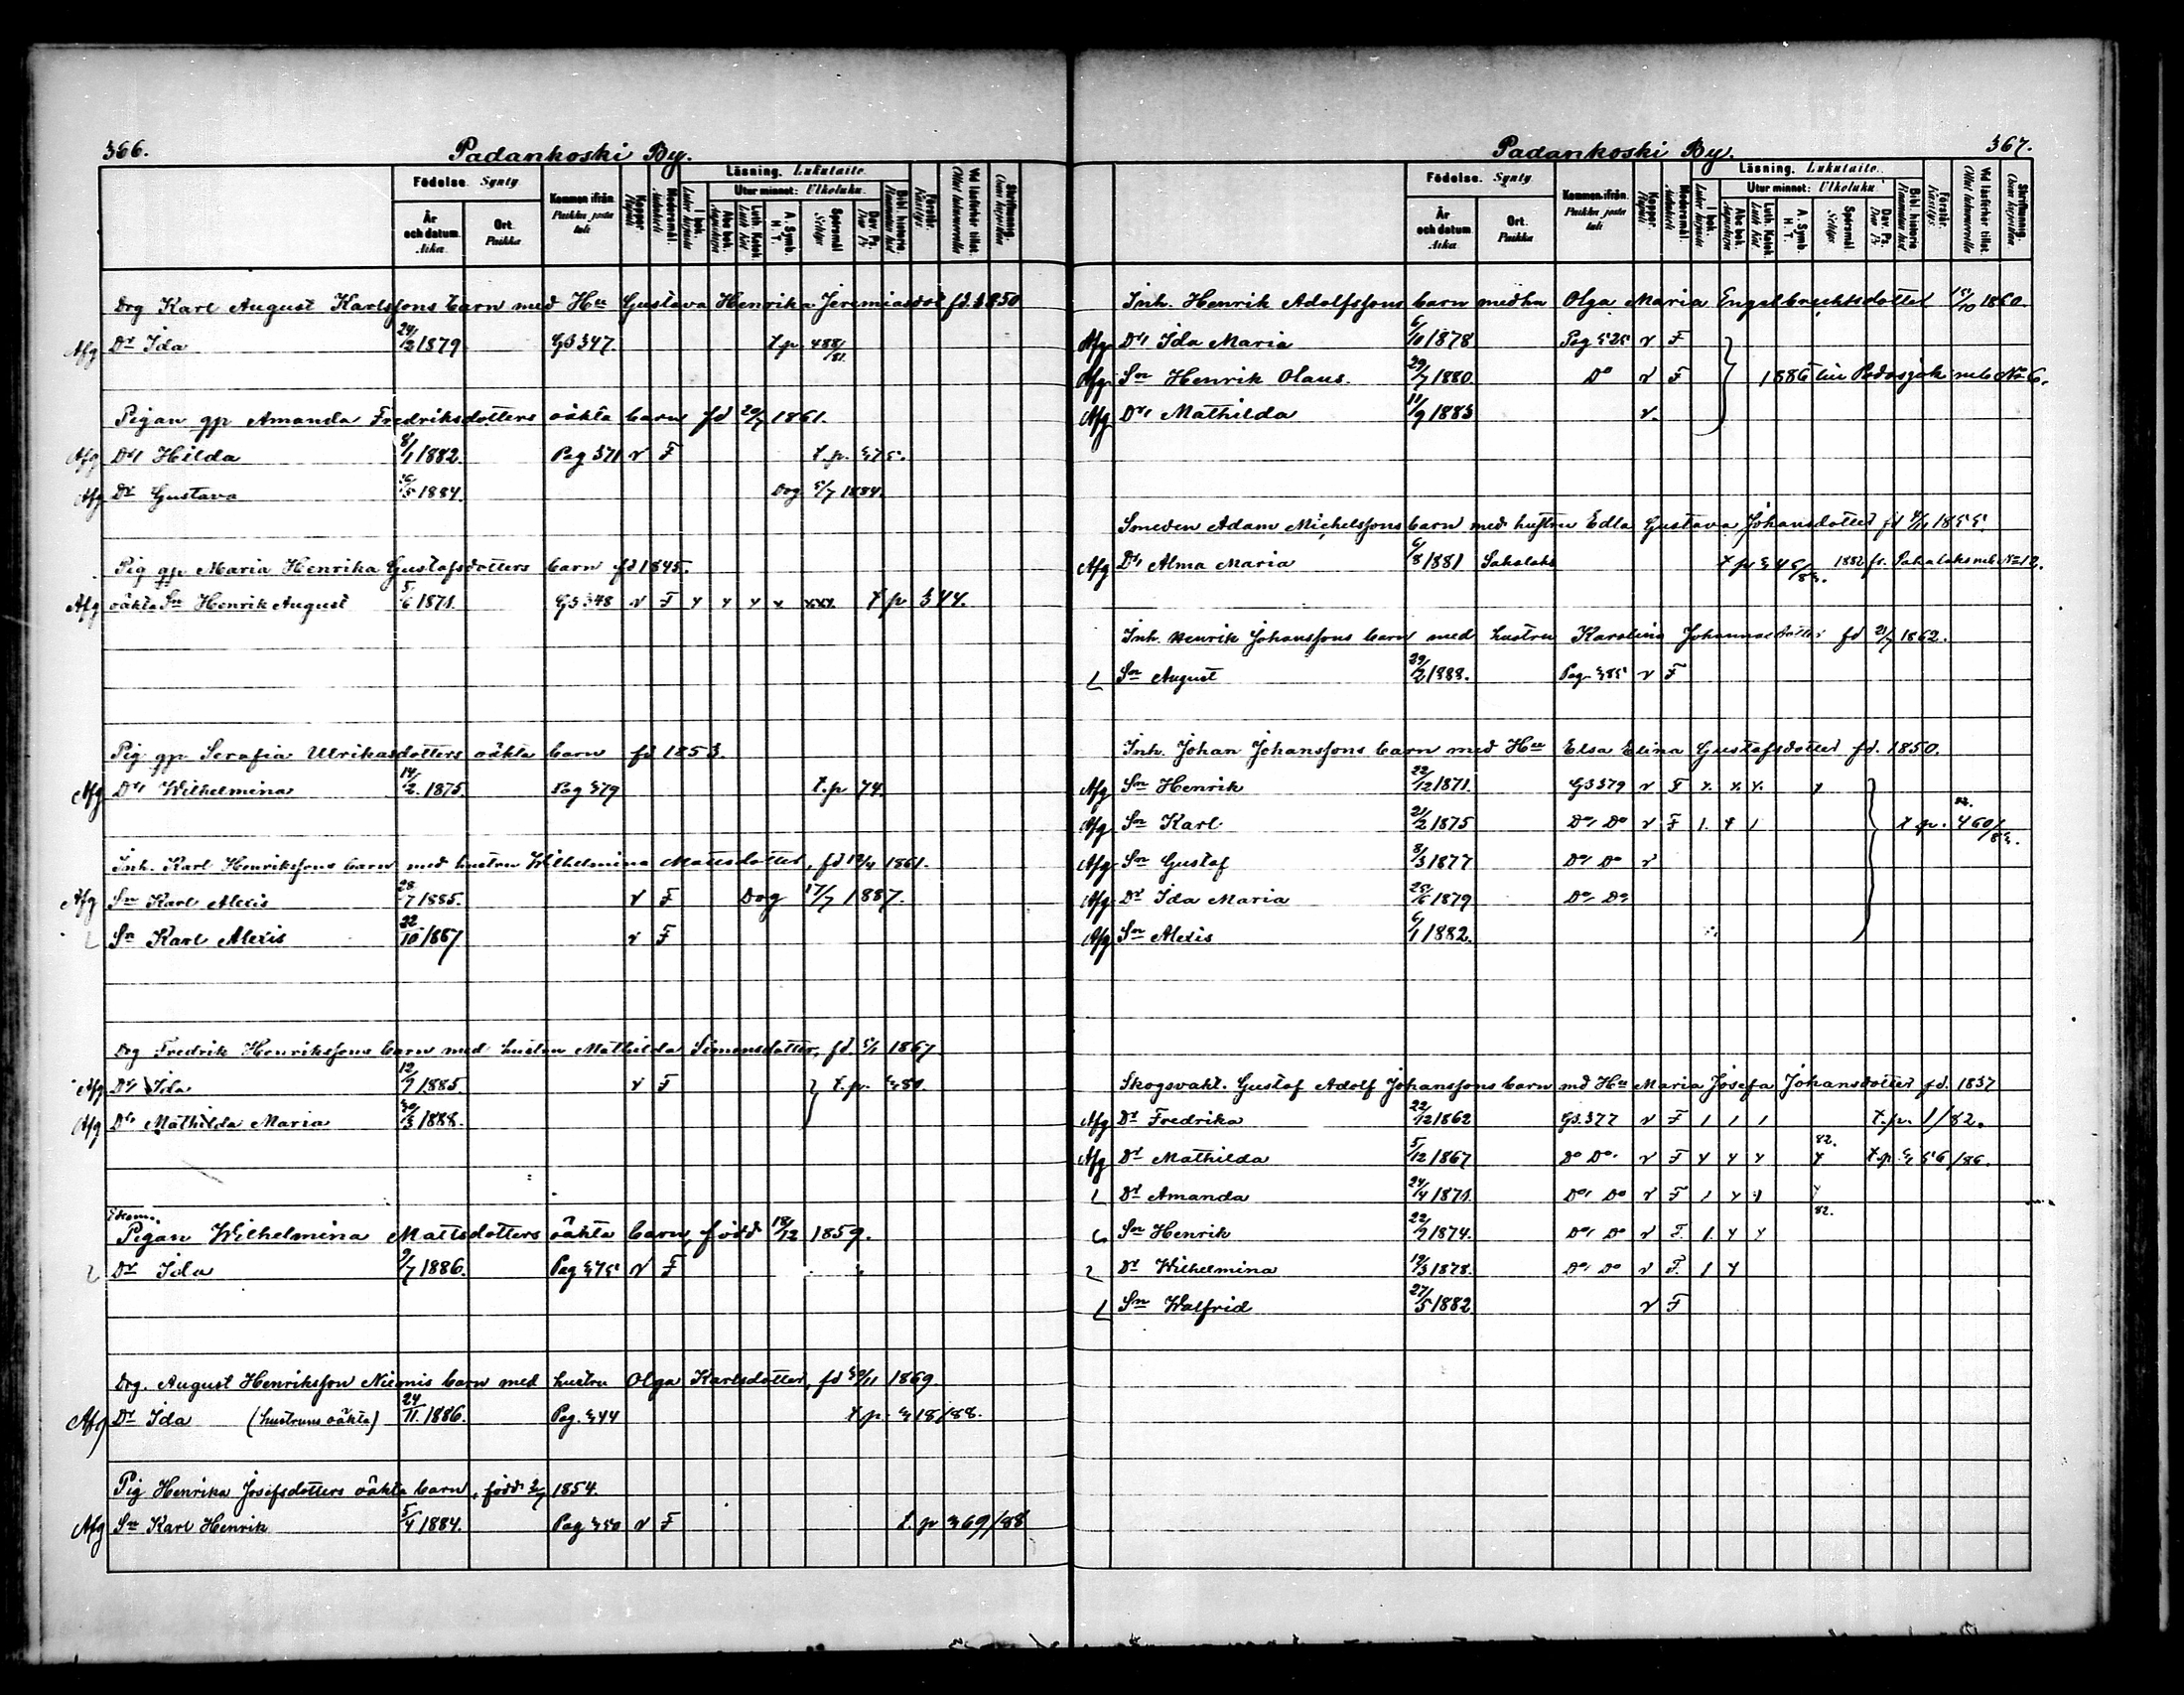 366.
Padankoski By.
Födelse. Synty
Kommen ifrån. Paikka josta tuli
Koppor. Rupuli
Modersmål.
Läsning. Lukutaito.
I bok.
Utur minnet: Ulkoluku.
Abc bok.
Luth. Katek.
A. Symb. H. T.
Spörsmål
Dav. Ps.
Bibl. historia
Förstår. Käsitys.
Vid läsförhör tillst.
Skriftkunnig.
År och datum. Aika.
Ort. Paikka
Drg Karl August Karlssons barn med Hu Gustava Henrika Jeremiasdot fd. 1850
Afg Dr Ida 24/2 1879 GB 347. t.p. 488/81.
Pigan gp Amanda Fredriksdotters oäkta barn fd 20/7 1861.
Afg Dr Hilda 8/1 1882. Pag 371 v F t.p. 375.
Afg Dr Gustava 16/5 1884. Dog 5/7 1884.
Pig gp Maria Henrika Gustafsdotters barn fd 1845.
Afg oäkta Sn Henrik August 5/6 1871. GB 348 v F t p 344.
Pig gp Serafia Ulrikasdotters oäkta barn fd 1853.
Afg Dr Wilhelmina 14/2 1875. Pag 379 t.p 74.
Inh. Karl Henrikssons barn med hustru Wilhelmina Mattsdotter, fd 1861.
Afg Sn Karl Alexis 28/7 1885. v F Dog 17/7 1887.
Sn Karl Alexis 22/10 1887 v F
Drg Fredrik Henrikssons barn med hustru Mathilda Simonsdotter, fd. 5/1 1867
Afg Dr Ida 12/7 1885. v F t.p. 380.
Afg Dr Mathilda Maria 30/3 1888.
Pigan Wilhelmina Mattsdotters oäkta barn, född 18/12 1859.
Dr Ida 9/7 1886. Pag 375 v F
Drg. August Henriksson Niemis barn med hustru Olga Karlsdotter, fd 30/11 1869
Afg Dr Ida (hustruns oäkta) 24/11 1886. Pag. 344 t.p. 318/88.
Pig Henrika Josefsdotters oäkta barn, född 2/7 1854.
Afg Sn Karl Henrik 5/4 1884. Pag 350 v F t. p 369/88
Padankoski By.
367.
Födelse. Synty
Kommen ifrån. Paikka josta tuli
Koppor. Rupuli
Modersmål.
Läsning. Lukutaito.
I bok.
Utur minnet: Ulkoluku.
Abc bok.
Luth. Katek.
A. Symb. H. T.
Spörsmål
Dav. Ps.
Bibl. historia
Förstår. Käsitys.
Vid läsförhör tillst.
Skriftkunnig.
År och datum. Aika
Ort. Paikka
Inh. Henrik Adolfssons barn med hu Olga Maria Engelbrechtsdotter 15/10 1860.
Afg. Dr Ida Maria 6/11 1878 Pag 525 v F
Afg. Sn Henrik Olaus. 29/7 1880. Do v F 1886 till Padasjok mb No 6.
Afg Dr Mathilda 11/9 1883 v.
Smeden Adam Michelssons barn med hustru Edla Gustava Johansdotter fd 1855
Afg Dr Alma Maria 6/8 1881 Sahalaks 1882 fr. Sahalaks mb No 12.
Inh. Henrik Johanssons barn med hustru Karolina Johannesdotter fd 21/7 1862.
Sn August 29/2 1888. Pag. 385 v F
Inh. Johan Johanssons barn med Hu Elsa Elina Gustafsdotter fd. 1850.
Afg Sn Henrik 22/12 1871. GB 379 v F
Afg. Sn Karl 21/2 1875 Do Do v F t.p. 460/83.
Afg. Sn Gustaf 8/3 1877 Do Do v
Afg Dr Ida Maria 1879 Do Do
Afg Sn Alexis 6/1 1882.
Skogsvakt. Gustaf Adolf Johanssons barn md Hu Maria Josefa Johansdotter fd. 1837
Afg Dr Fredrika 22/12 1862 GB. 377 v F t.p. 1/82.
Afg Dr Mathilda 5/12 1867 Do Do. v F 82. t.p. 356/86.
Dr Amanda 24/4 1871. Do Do v F
Sn Henrik 22/7 1874. Do Do v F. 82.
Dr Wilhelmina 19/3 1878. Do Do v F.
Sn Walfrid 27/5 1882. v F